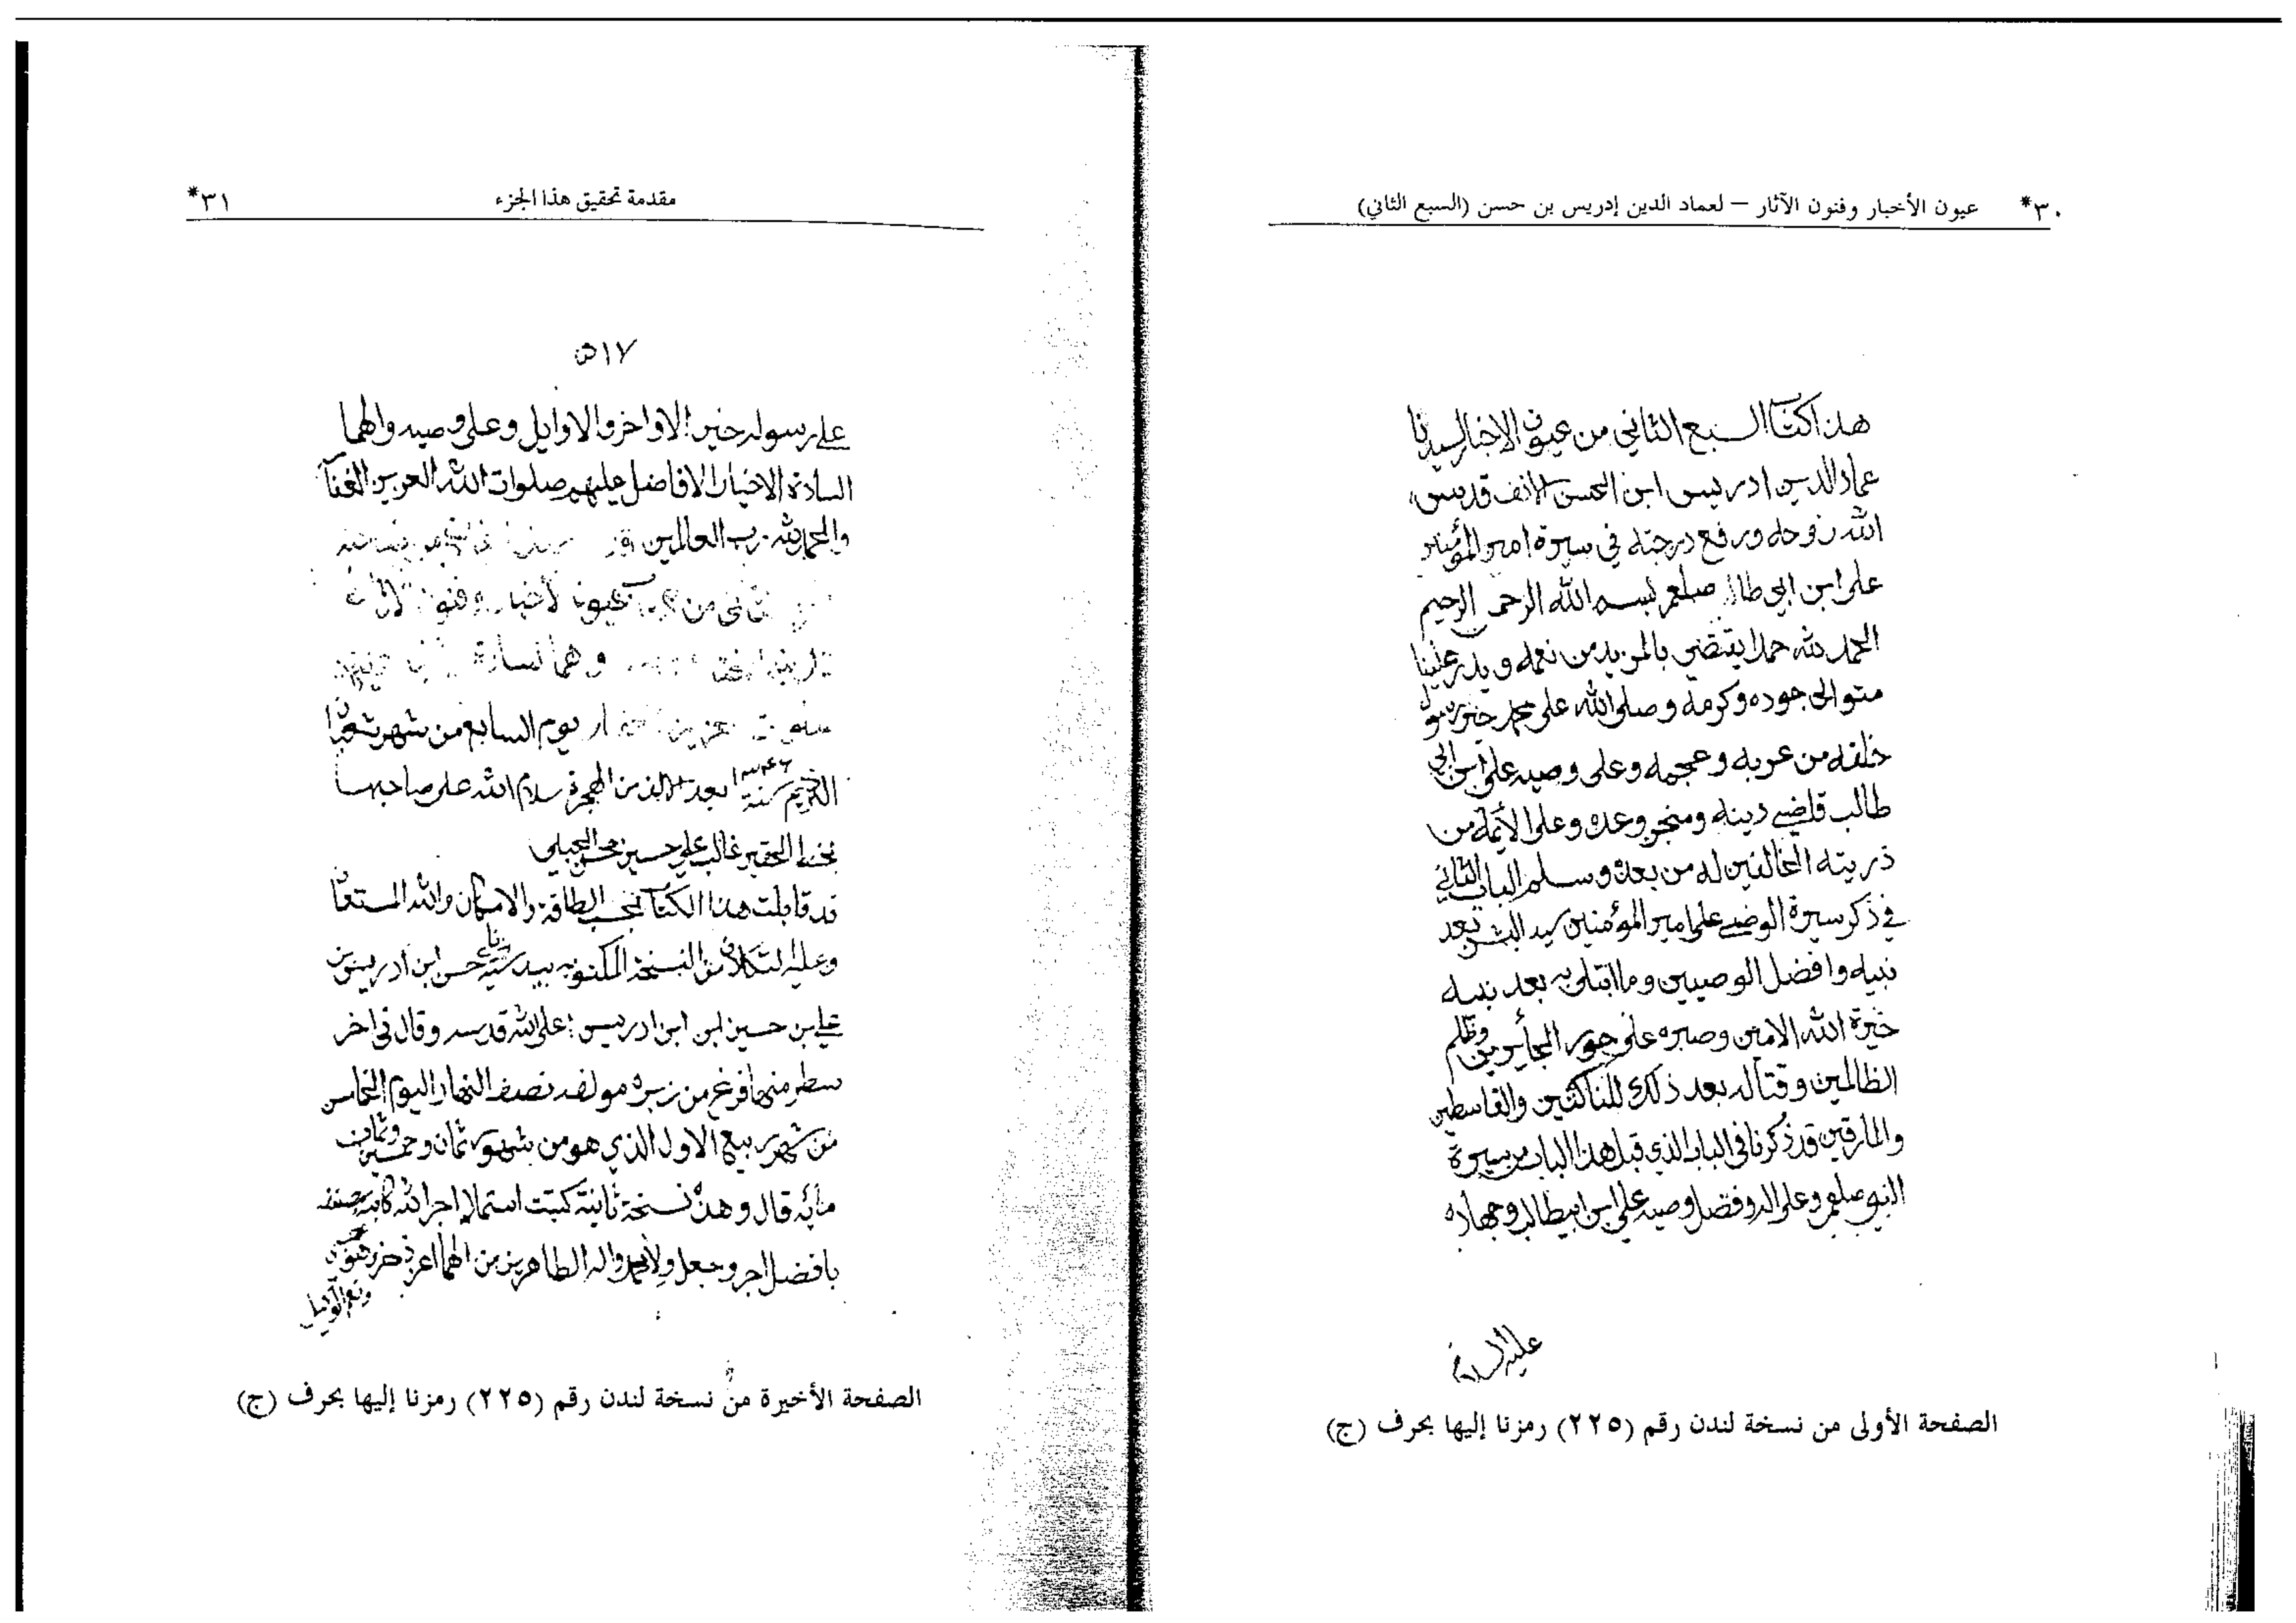 ٣٠* عيون الأخبار وفنون الآثار – لعماد الدين إدريس بن حسن (السبع الثاني)
هذا كتاب السبع الثاني من عيون الاخبار لسيدنا
عماد الدين ادريس ابن الحسن الانف قدس
الله روحه ورفع درجته في سيرة امير المؤمنين
على ابن ابي طالب صلعم بسم الله الرحمن الرحيم
الحمد لله حمدا يقتضى بالمزيد من نعمه ويدر علينا
متوالى جوده وكرمه وصلى الله على محمد خير رسول
خلقه من عربه وعجمه وعلى وصيه على ابن ابي
طالب قاضي دينه ومنجز وعده وعلى الأئمة من
ذريته الخالفين له من بعده وسلم الباب الثاني
في ذكر سيرة الوصي على امير المؤمنين سيد البشر بعد
نبيه وافضل الوصيين وما ابتلى به بعد نبيه
خيرة الله الامين وصبره على جور الجأيرين وظلم
الظالمين وقتاله بعد ذلك للناكثين والقاسطين
والمارقين قد ذكرنا في الباب الذي قبل هذا الباب من سيرة
النبي صلعم وعلى اله وفضل وصيه علي ابن ابيطالب وجهاده
عليه السلام
الصفحة الأولى من نسخة لندن رقم (٢٢٥) رمزنا إليها بحرف (ج)
مقدمة تحقيق هذا الجزء ٣١*
٥١٧
على رسوله خير الاواخر والاوايل وعلى وصيه والهما
السادة الاخيار الافاضل عليهم صلوات الله العزيز الغفار
والحمد لله رب العالمين
من عيون الأخبار وفنون الاثار
وهما
يوم السابع من شهر شعبان
الكريم سنة ١٣٤٦ بعد الالف من الهجرة سلام الله على صاحبها
بخط الحقير غالب علي حسين محسن الجبلي
قد قابلت هذا الكتاب بحسب الطاقة والامكان والله المستعان
وعليه التكلان من النسخة المكنونه بيد سيدنا حسن ابن ادريس بن
علي بن حسين ابن ادريس اعلى الله قدسه وقال في اخر
سطر منها فرغ من زبره مولفه نصف النهار اليوم الخامس
من شهر ربيع الاول الذي هو من شهور ثمان وخمسين وثمان
مائه قال وهذه نسخة ثانية كتبت استملا اجر الله كاتبه ومصنفه
بافضل اجر وجعل ولاء محمد واله الطاهرين من الهما اعز ذخر
الصفحة الأخيرة من نسخة لندن رقم (٢٢٥) رمزنا إليها بحرف (ج)